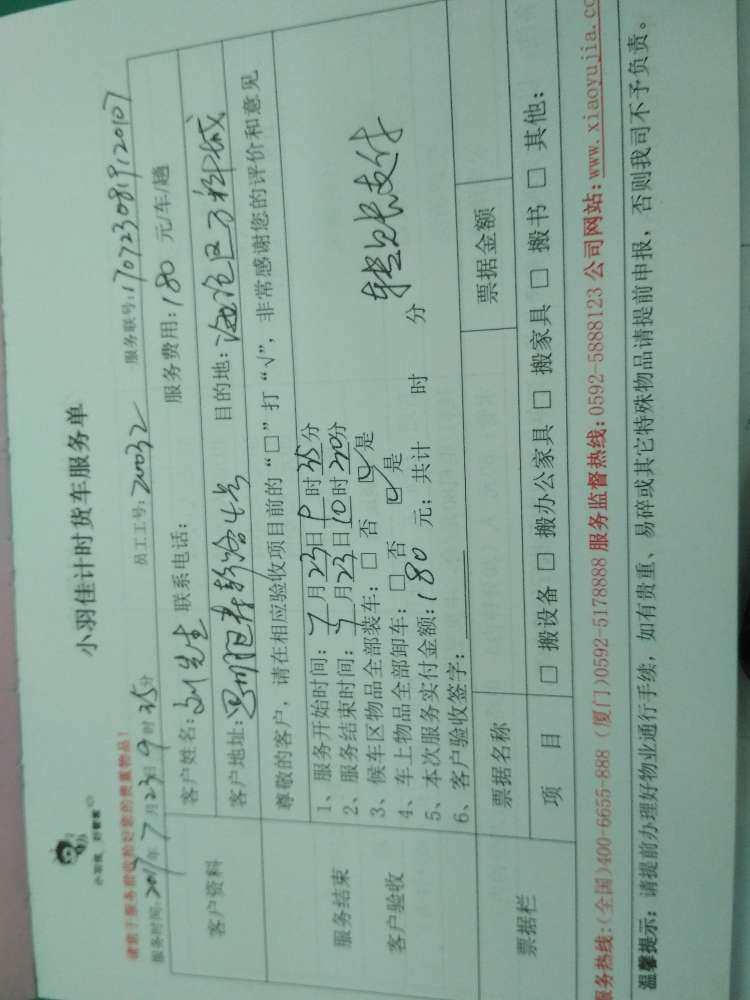 小羽佳 好管家
小羽佳计时货车服务单
请您于服务前收检好您的贵重物品！
服务时间：2017年7月23日9时35分 员工工号：20032 服务联号：1707230819120107
客户资料
客户姓名：刘先生 联系电话： 服务费用：180 元/车/趟
客户地址： 目的地：海沧区万科城
服务结束
客户验收
尊敬的客户，请在相应验收项目前的“□”打“√”，非常感谢您的评价和意见
1、服务开始时间：7月23日9时35分
2、服务结束时间：7月23日10时20分
3、候车区物品全部装车：□ 否 ☑ 是
4、车上物品全部卸车：□ 否 ☑ 是
5、本次服务实付金额：180 元；共计 时 分
转账支付
6、客户验收签字：
票据栏
票据名称 票据金额
项 目 □ 搬设备 □ 搬办公家具 □ 搬家具 □ 搬书 □ 其他：
服务热线：(全国)400-6655-888 (厦门)0592-5178888 服务监督热线：0592-5888123 公司网站：www.xiaoyujia.cc
温馨提示：请提前办理好物业通行手续，如有贵重、易碎或其它特殊物品请提前申报，否则我司不予负责。